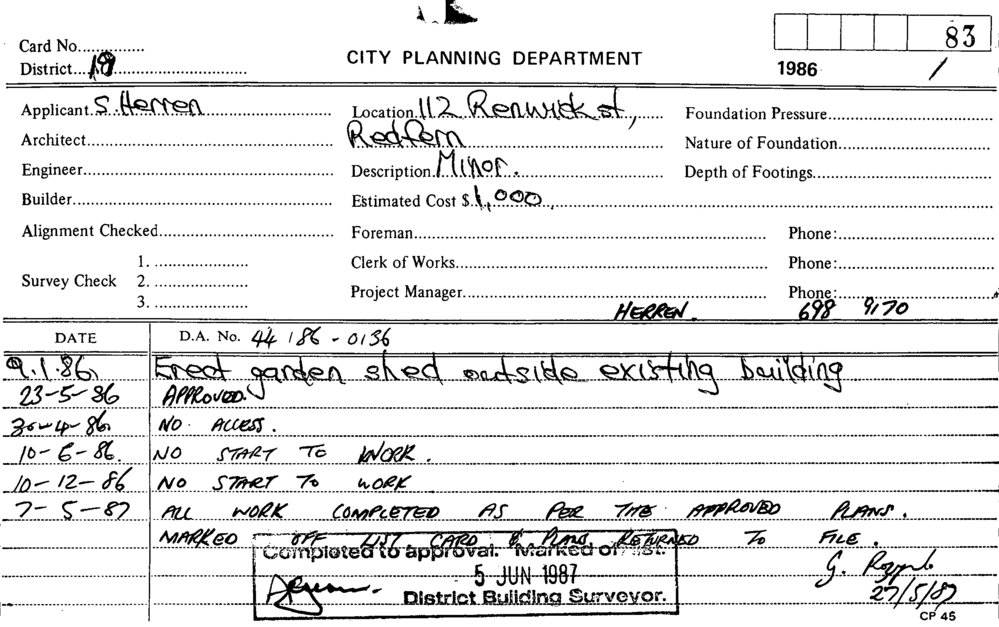 83
Card No..............
District...19..................
CITY PLANNING DEPARTMENT
1986 /
Applicant S. Herren Location 112 Renwick st, Foundation Pressure
Architect Redfern Nature of Foundation
Engineer Description Minor. Depth of Footings
Builder Estimated Cost $ 1,000
Alignment Checked Foreman Phone:
1. Clerk of Works Phone:
Survey Check 2.
3. Project Manager Phone:
HERREN. 698 9170
DATE D.A. No. 44/86-0136
9.1.86, Erect garden shed outside existing building
23-5-86 APPROVED.
30-4-86 NO ACCESS.
10-6-86. NO START TO WORK.
10-12-86 NO START TO WORK
7-5-87 ALL WORK COMPLETED AS PER THE APPROVED PLANS.
MARKED OFF LIST CARD & PLANS RETURNED TO FILE.
Completed to approval. Marked off list.
5 JUN 1987
District Building Surveyor.
G.
27/5/87
CP 45